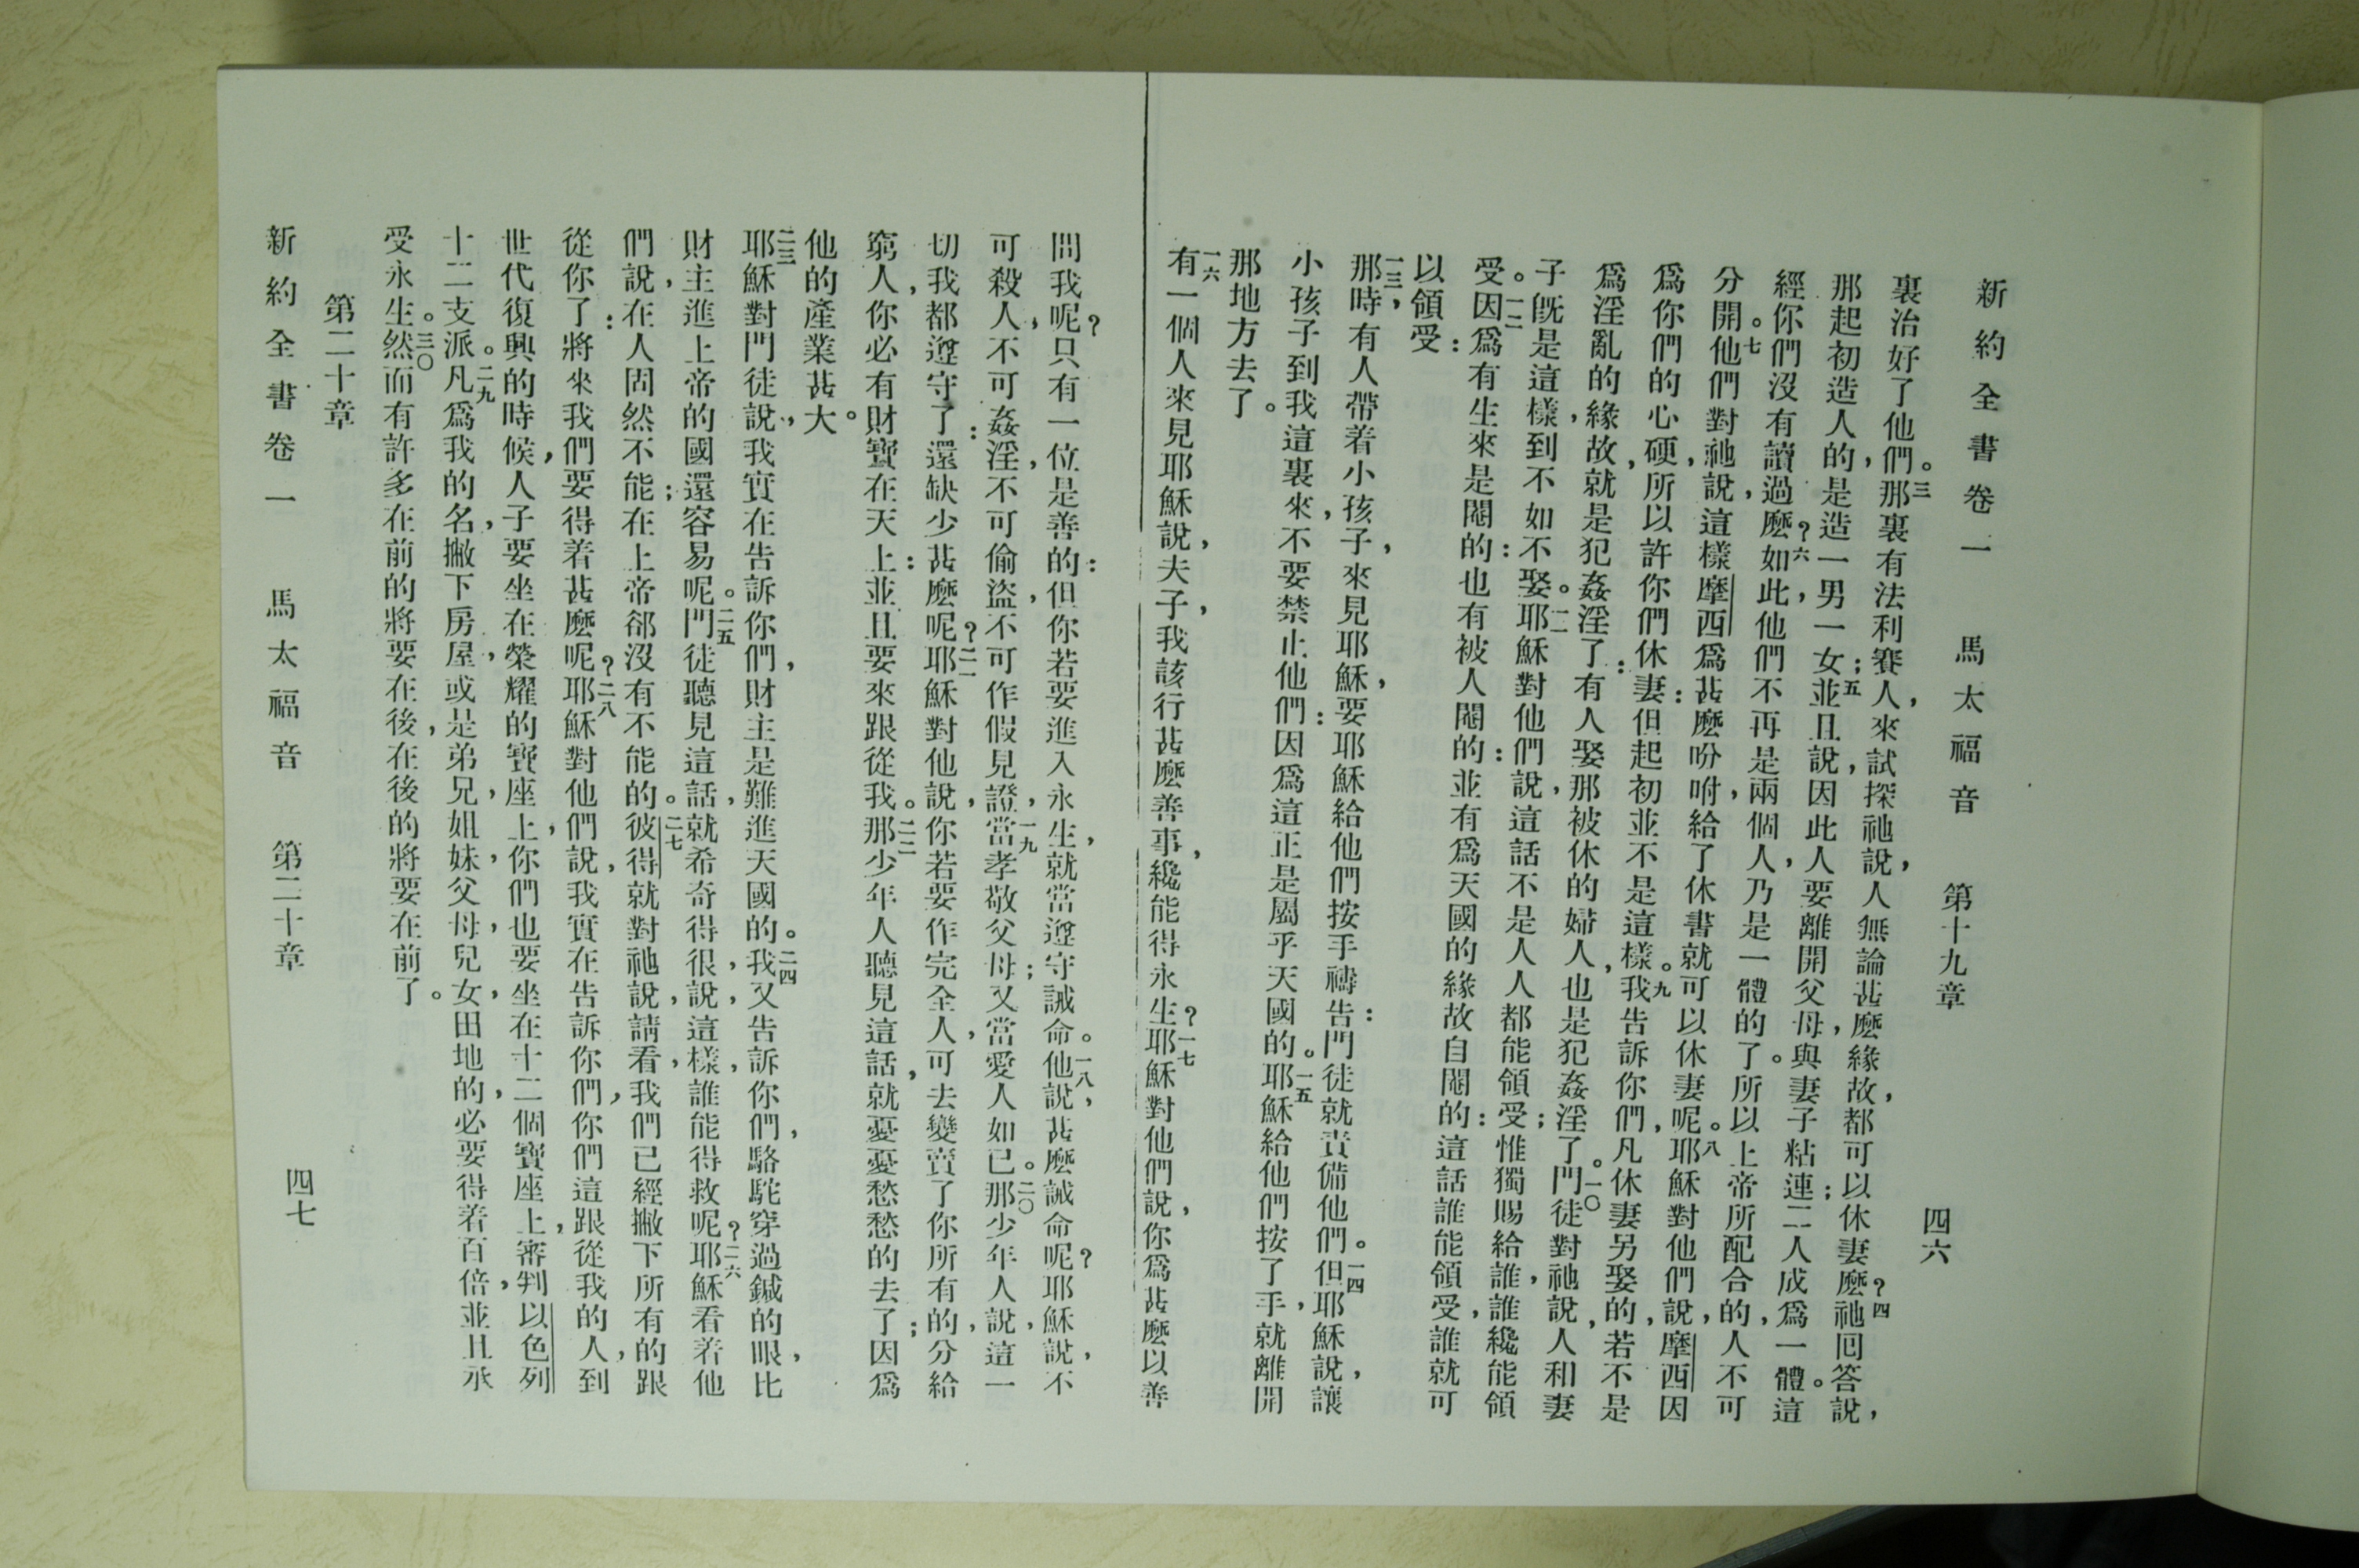 新約全書卷一 馬太福音 第十九章 四六
裏治好了他們。三那裏有法利賽人,來試探祂說,人無論甚麼緣故,都可以休妻麼?四祂回答說,
那起初造人的,是造一男一女;五並且說,因此人要離開父母,與妻子粘連;二人成爲一體。這
經你們沒有讀過麼?六如此,他們不再是兩個人,乃是一體的了。所以上帝所配合的,人不可
分開。七他們對祂說,這樣摩西爲甚麼吩咐,給了休書就可以休妻呢。八耶穌對他們說,摩西因
爲你們的心硬,所以許你們休妻:但起初並不是這樣。九我告訴你們,凡休妻另娶的,若不是
爲淫亂的緣故,就是犯姦淫了:有人娶那被休的婦人,也是犯姦淫了。一〇門徒對祂說,人和妻
子旣是這樣,到不如不娶。一一耶穌對他們說,這話不是人人都能領受;惟獨賜給誰,誰纔能領
受。一二因爲有生來是閹的:也有被人閹的:並有爲天國的緣故自閹的:這話誰能領受,誰就可
以領受:
一三那時,有人帶着小孩子,來見耶穌,要耶穌給他們按手禱告:門徒就責備他們。一四但耶穌說,讓
小孩子到我這裏來,不要禁止他們:因爲這正是屬乎天國的。一五耶穌給他們按了手,就離開
那地方去了。
一六有一個人來見耶穌說,夫子,我該行甚麼善事,纔能得永生?一七耶穌對他們說,你爲甚麼以善
問我呢?只有一位是善的:但你若要進入永生,就當遵守誡命。一八他說,甚麼誡命呢?耶穌說,不
可殺人,不可姦淫,不可偷盜,不可作假見證,一九當孝敬父母;又當愛人如己。二〇那少年人說,這一
切我都遵守了:還缺少甚麼呢?二一耶穌對他說,你若要作完全人,可去變賣了你所有的,分給
窮人,你必有財寶在天上:並且要來跟從我。二二那少年人聽見這話,就憂憂愁愁的去了;因爲
他的產業甚大。
二三耶穌對門徒說,我實在告訴你們,財主是難進天國的。二四我又告訴你們,駱駝穿過鍼的眼,比
財主進上帝的國還容易呢。二五門徒聽見這話,就希奇得很,說,這樣,誰能得救呢?二六耶穌看着他
們說,在人固然不能;在上帝郤沒有不能的。二七彼得就對祂說,請看,我們已經撇下所有的跟
從你了:將來我們要得着甚麼呢?二八耶穌對他們說,我實在告訴你們,你們這跟從我的人,到
世代復興的時候,人子要坐在榮耀的寶座上,你們也要坐在十二個寶座上,審判以色列
十二支派。二九凡爲我的名,撇下房屋,或是弟兄,姐妹,父母,兒女,田地的,必要得着百倍,並且承
受永生。三〇然而有許多在前的將要在後,在後的將要在前了。
第二十章
新約全書卷一 馬太福音 第二十章 四七